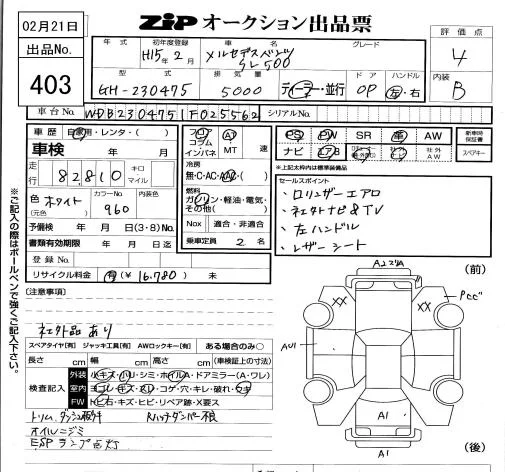 02月21日
出品No.
403
ZIP オークション出品票
評価点
4
内装
B
年式 初年度登録 車名 グレード
H15年2月 メルセデスベンツ SL500
型式 排気量 ドア ハンドル
GH-230475 5000 ディーラー・並行 OP 左・右
車台No. WDB2304751F025562 シリアルNo.
車歴 自家用・レンタ・( )
車検 年 月
走行 82,810 キロ マイル
色 ホワイト カラーNo. 960 内装色
(元色)
予備検 年 月(3・8)No.
書類有効期限 年 月 日迄
登録No.
リサイクル料金 有(¥16,780) 未
フロア コラム インパネ A MT 速
冷房
無・C・AC・AAC・( )
燃料
ガソリン・軽油・電気・その他( )
Nox 適合・非適合
乗車定員 2 名
PS PW SR 革 AW
ナビ エアB 社外AW
新車時保証書
スペアキー
*上記太枠内は標準装備品
セールスポイント
・ロリンザーエアロ
・社外ナビ&TV
・左ハンドル
・レザーシート
※ご記入の際はボールペンで強くご記入下さい。
(注意事項)
社外品あり
スペアタイヤ[有] ジャッキ工具[有] AWロックキー[有] ある場合のみ○
長さ cm 幅 cm 高さ cm (車検証上の寸法)
検査記入
外装 小キズ・ハリ・シミ・ホイルA・ドアミラー(A・ワレ)
室内 ヨゴレ・キズ・スレ・コゲ・穴・キレ・破れ・ウキ
FW トビ石・キズ・ヒビ・リペア跡・X要ス
トリム、ダッシュ板キ Rハッチダンパー不良
オイルニジミ
ESPランプ点灯
(前)
XX
XX
Pcc"
AU1
A1
A1
(後)
会社名